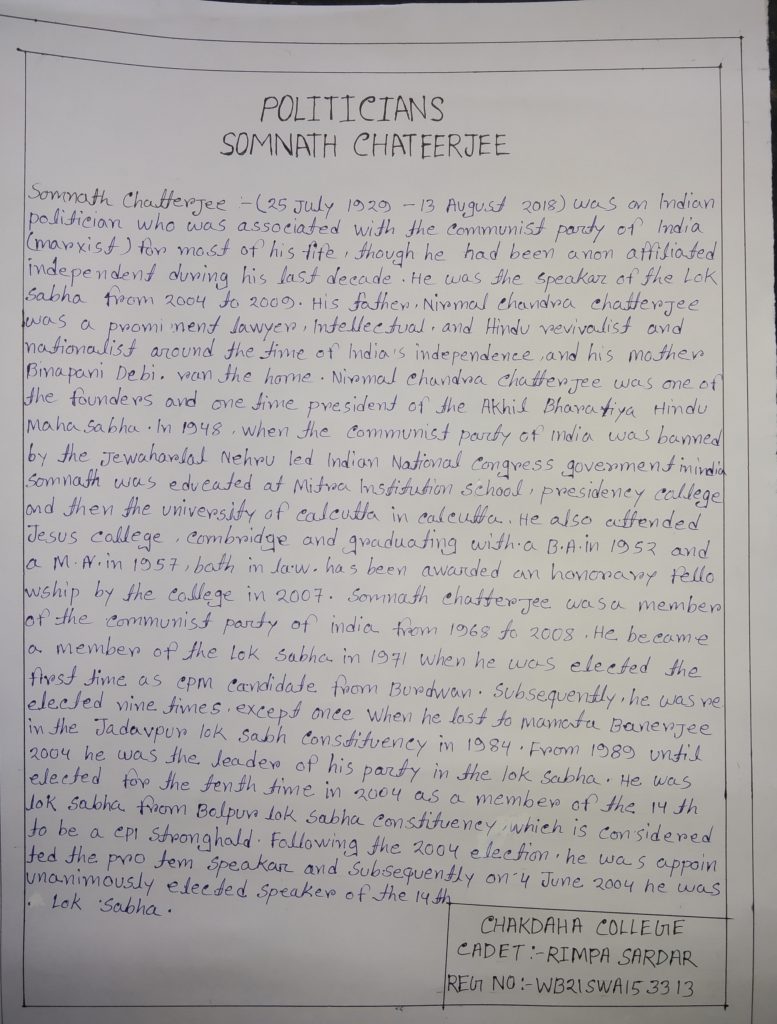 POLITICIANS
SOMNATH CHATEERJEE
Somnath Chatterjee :-(25 July 1929 - 13 August 2018) was an Indian
politician who was associated with the communist party of India
(marxist) for most of his life, though he had been anon affiliated
independent during his last decade. He was the speakar of the Lok
Sabha from 2004 to 2009. His father, Nirmal chandra chatterjee
was a prominment lawyer, Intellectual, and Hindu revivalist and
nationalist around the time of India's independence, and his mother
Binapani Debi. ran the home. Nirmal chandra chatterjee was one of
the founders and one time president of the Akhil Bharatiya Hindu
Maha sabha. In 1948, when the communist party of india was banned
by the Jewaharlal Nehru led Indian National congress goverment in india
somnath was educated at Mitra Institution school, presidency callege
and then the university of calcutta in calcutta. He also attended
Jesus callege, combridge and graduating with.a B.A.in 1952 and
a M.A.in 1957, bath in law. has been awarded an honorary fello
wship by the college in 2007. Somnath chatterjee was a member
of the communist party of india from 1968 to 2008. He became
a member of the lok sabha in 1971 when he was elected the
first time as cpm candidate from Burdwan. Subsequently, he was re
elected nine times, except once when he lost to Mamata Banerjee
in the Jadavpur lok sabh constituency in 1984. From 1989 until
2004 he was the leader of his party in the lok sabha. He was
elected for the tenth time in 2004 as a member of the 14 th
lok sabha from Bolpur lok sabha constituency, which is considered
to be a CPI stronghald. Following the 2004 election, he was appoin
ted the pro tem speakar and subsequently on 4 June 2004 he was
unanimously elected speaker of the 14th
Lok Sabha.
CHAKDAHA COLLEGE
CADET:-RIMPA SARDAR
REG NO:-WB21SWA153313